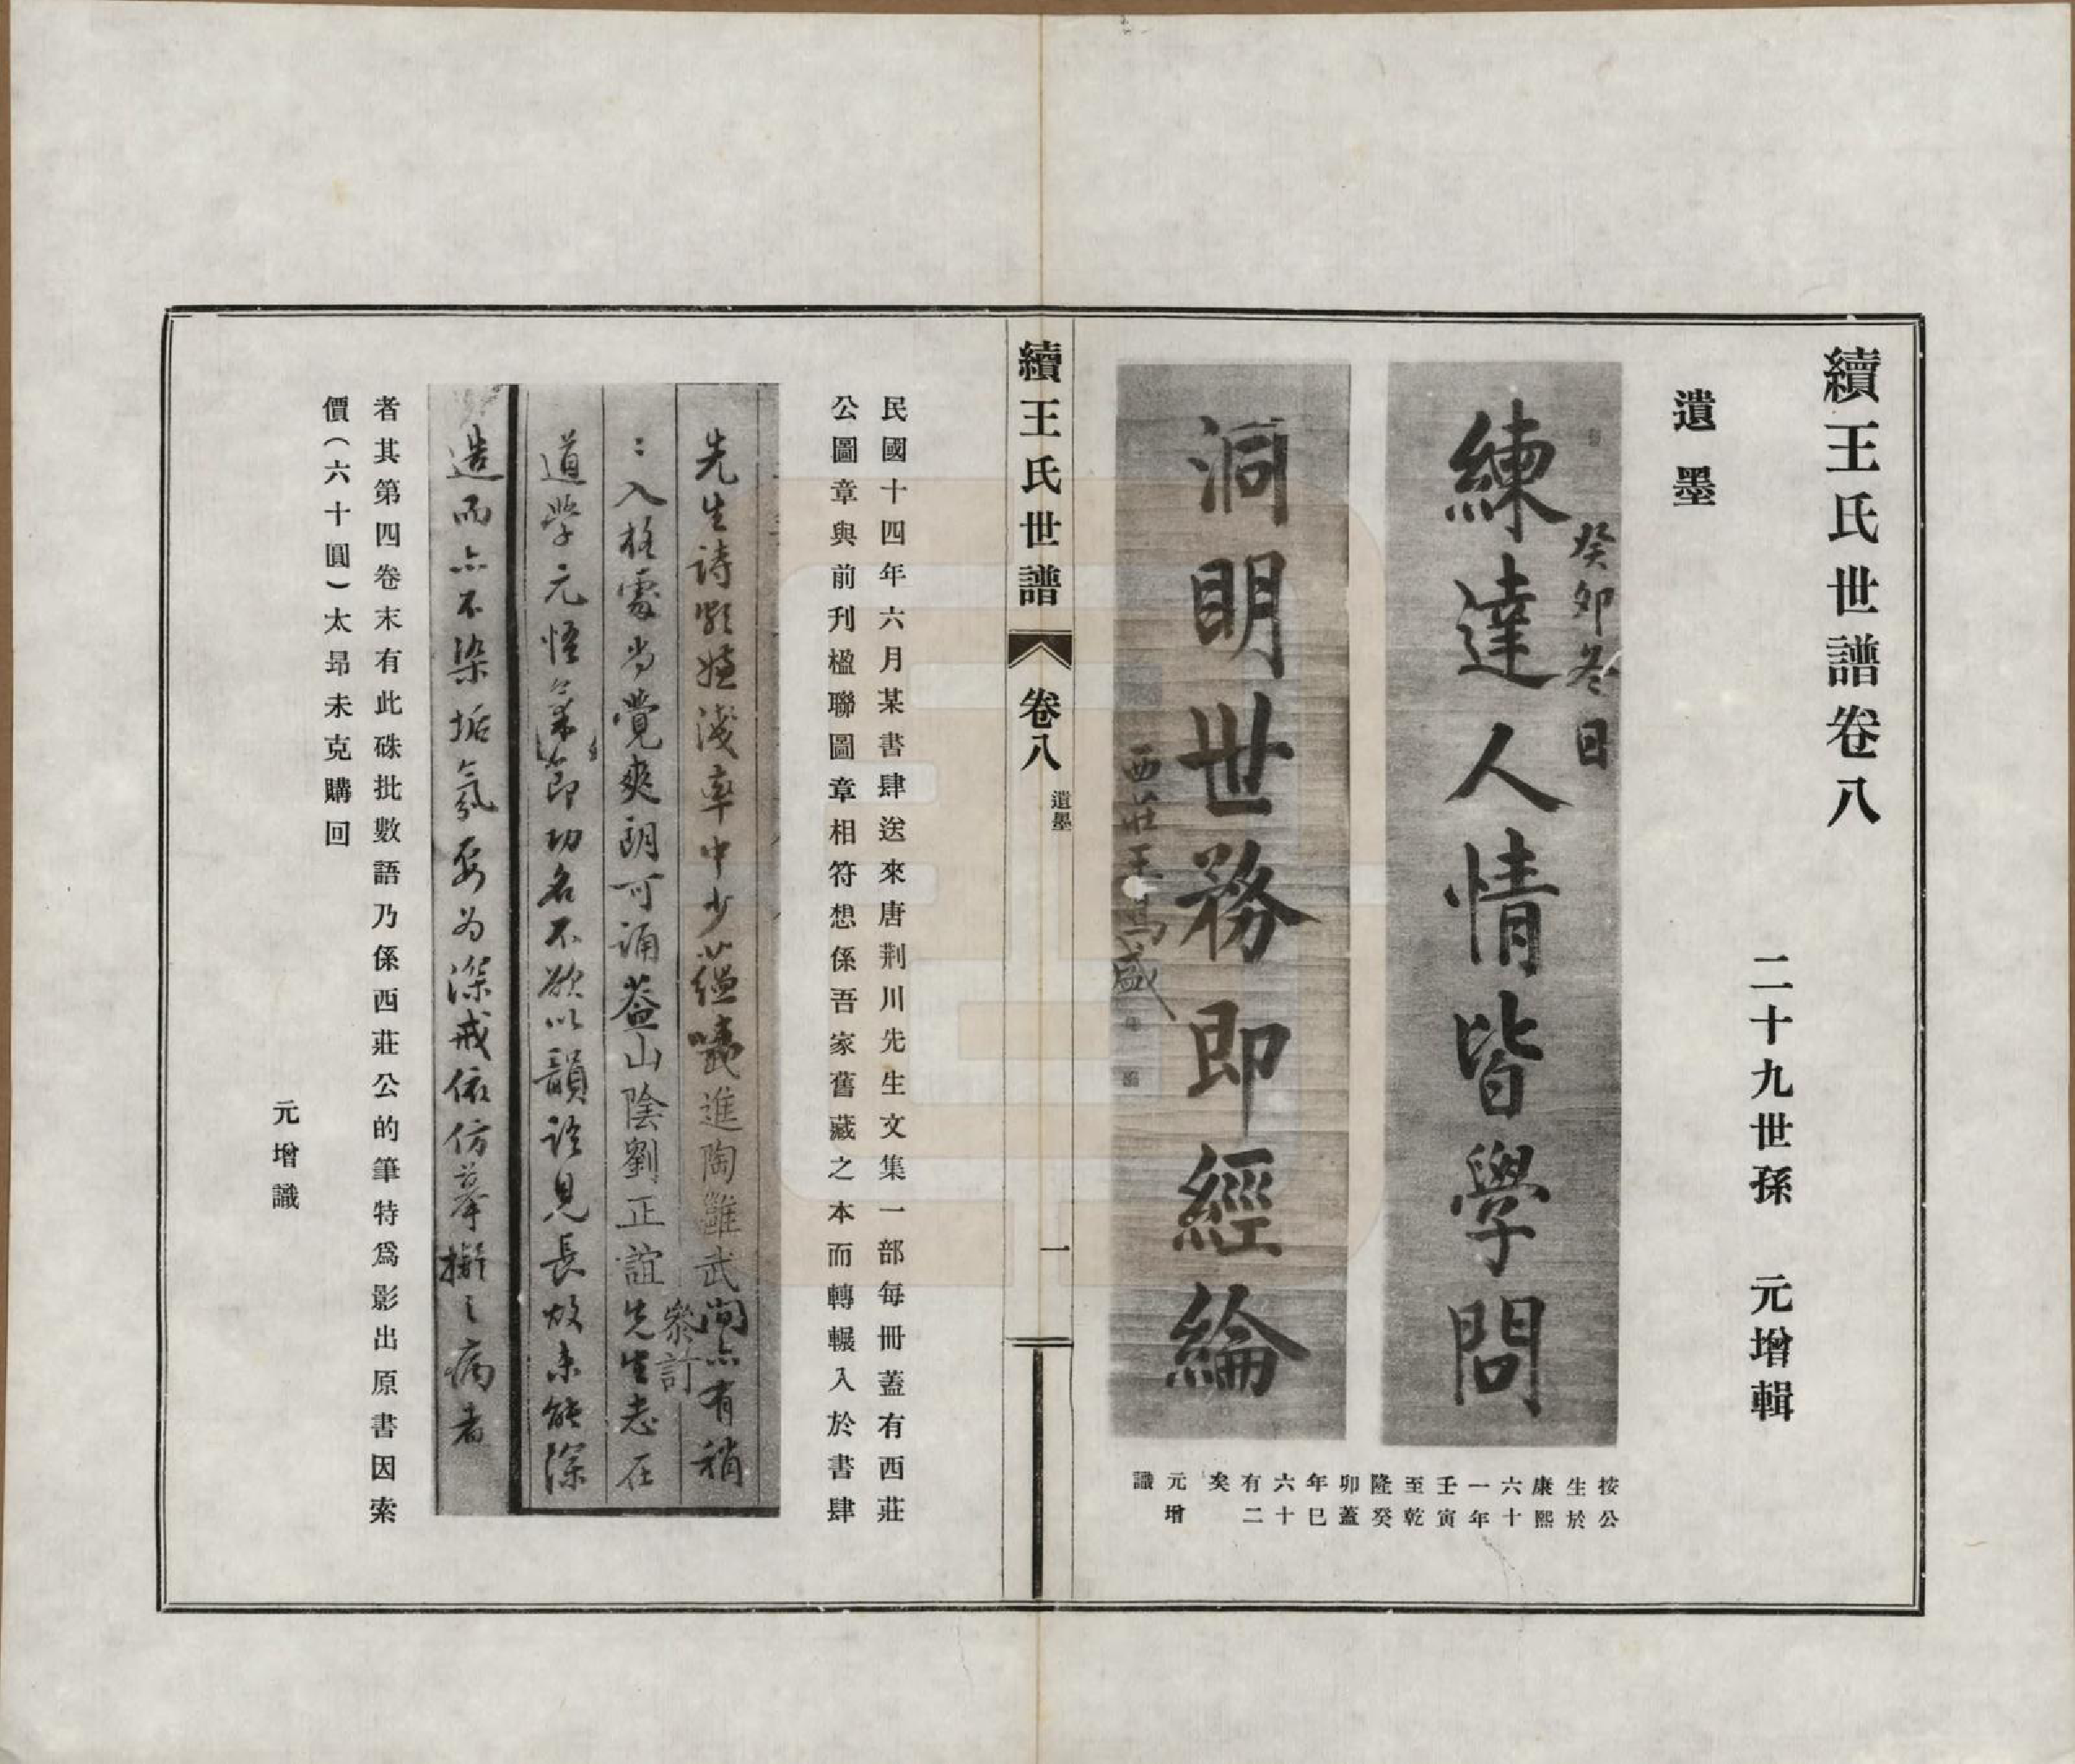 續王氏世譜卷八
二十九世孫　元增輯
遺墨
癸卯冬日
練達人情皆學問
洞明世務即經綸
西莊王鳴盛
按公
生於
康熙
六十
一年
壬寅
至乾
隆癸
卯蓋
年巳
六十
有二
矣
元增
識
續王氏世譜
卷八
遺墨
一
民國十四年六月某書肆送來唐荆川先生文集一部每冊蓋有西莊
公圖章與前刊楹聯圖章相符想係吾家舊藏之本而轉輾入於書肆
先生詩嫌淺率中少蘊進陶雖武間亦有稍
參訂
入格處尚覺爽朗可誦蓋山陰劉正誼先生志在
道學元悟氣節功名不欲以韻語見長故未能深
造而亦不染垢氛要為深戒依仿摹擬之病者
者其第四卷末有此硃批數語乃係西莊公的筆特爲影出原書因索
價（六十圓）太昂未克購回
元增識